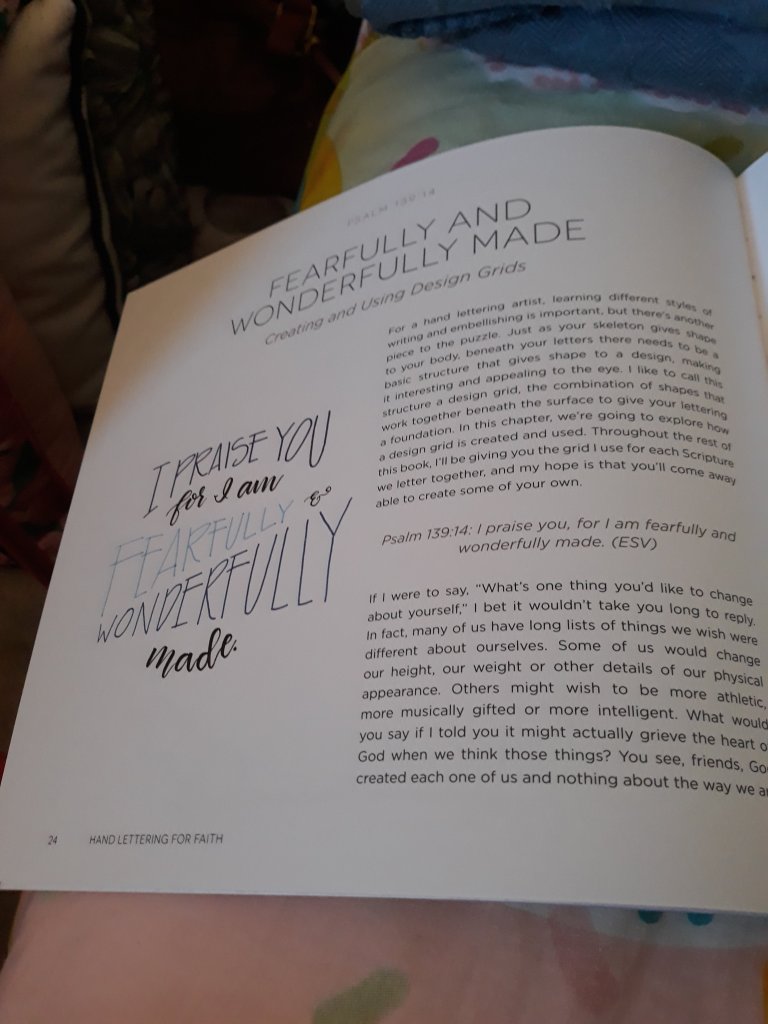 PSALM 139:14
FEARFULLY AND
WONDERFULLY MADE
Creating and Using Design Grids
I PRAISE YOU
for I am
FEARFULLY &
WONDERFULLY
made.
For a hand lettering artist, learning different styles of
writing and embellishing is important, but there's another
piece to the puzzle. Just as your skeleton gives shape
to your body, beneath your letters there needs to be a
basic structure that gives shape to a design, making
it interesting and appealing to the eye. I like to call this
structure a design grid, the combination of shapes that
work together beneath the surface to give your lettering
a foundation. In this chapter, we're going to explore how
a design grid is created and used. Throughout the rest of
this book, I'll be giving you the grid I use for each Scripture
we letter together, and my hope is that you'll come away
able to create some of your own.
Psalm 139:14: I praise you, for I am fearfully and
wonderfully made. (ESV)
If I were to say, "What's one thing you'd like to change
about yourself," I bet it wouldn't take you long to reply.
In fact, many of us have long lists of things we wish were
different about ourselves. Some of us would change
our height, our weight or other details of our physical
appearance. Others might wish to be more athletic,
more musically gifted or more intelligent. What would
you say if I told you it might actually grieve the heart o
God when we think those things? You see, friends, Go
created each one of us and nothing about the way we a
24 HAND LETTERING FOR FAITH